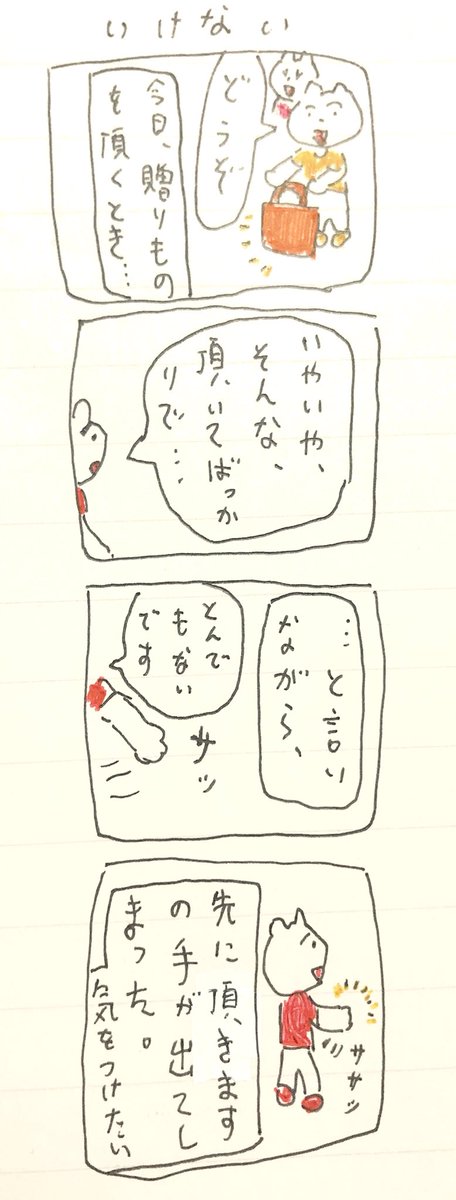 いけない
どうぞ
今日、贈りもの
を頂くとき…
いやいや、
そんな、
頂いてばっか
りで…
…と言い
ながら、
とんで
もない
です
サッ
ササッ
先に頂きます
の手が出てし
まった。
気をつけたい